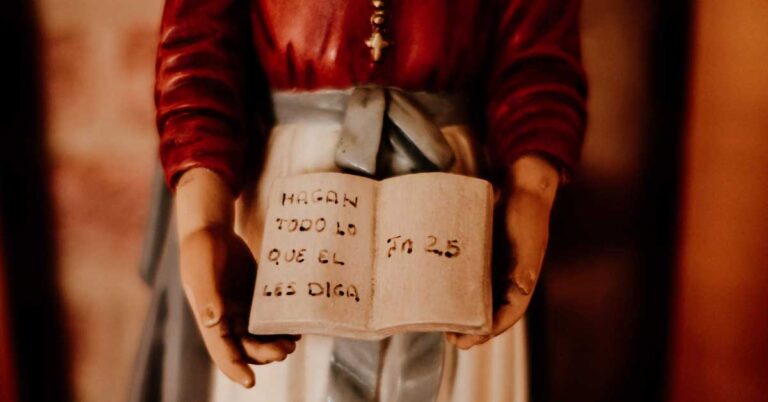 HAGAN
TODO LO
QUE EL
LES DIGA
Jn 2,5